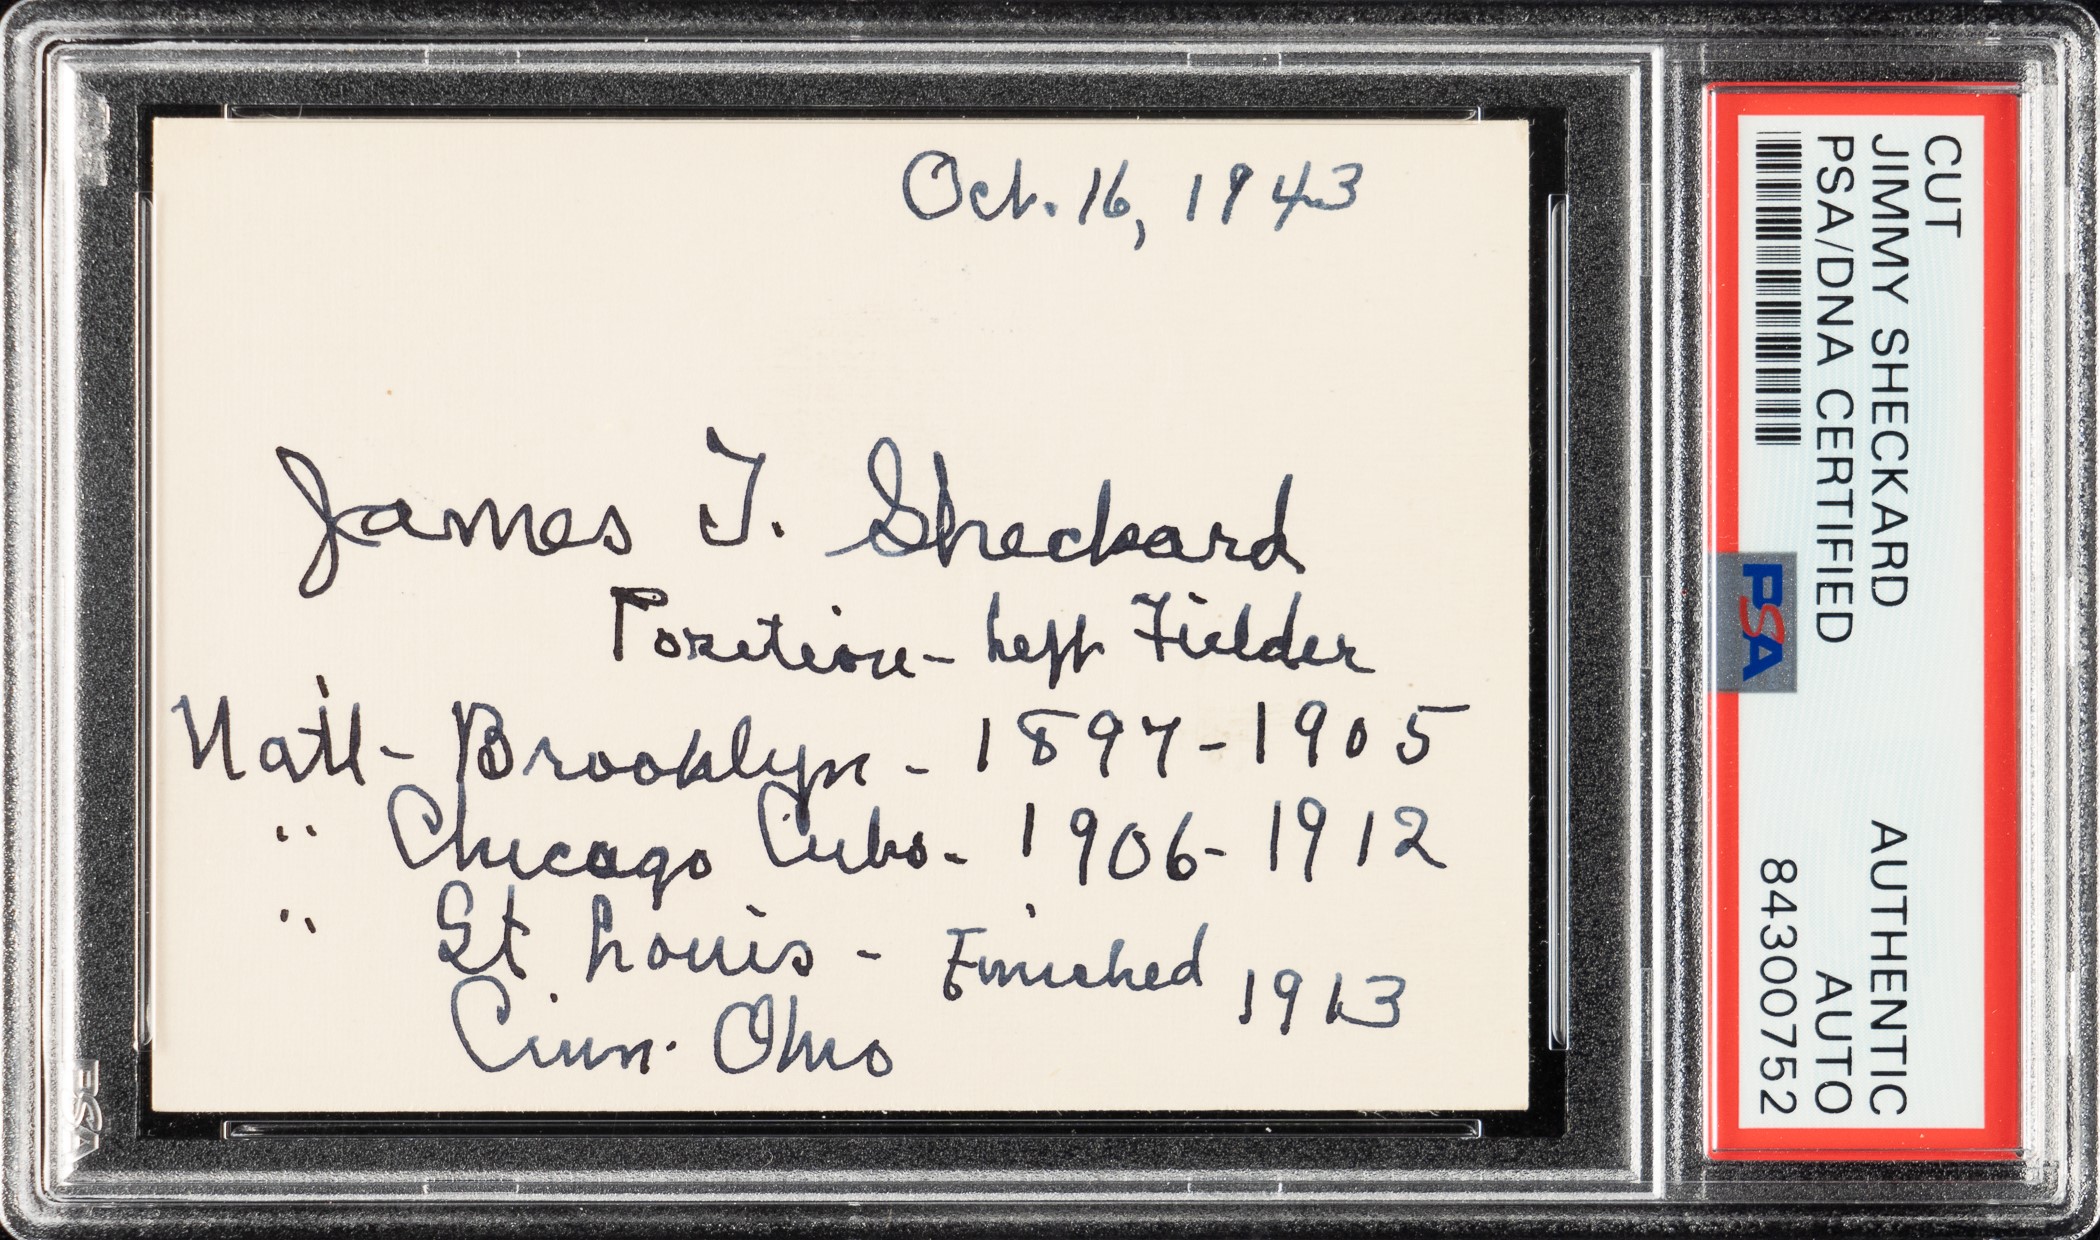 Oct. 16, 1943
James T. Sheckard
Position - Left Fielder
Nat'l - Brooklyn - 1897-1905
" Chicago Cubs - 1906-1912
" St Louis - Finished 1913
Cinn. Ohio
CUT
JIMMY SHECKARD
PSA/DNA CERTIFIED
AUTHENTIC
AUTO
84300752
PSA
PSA